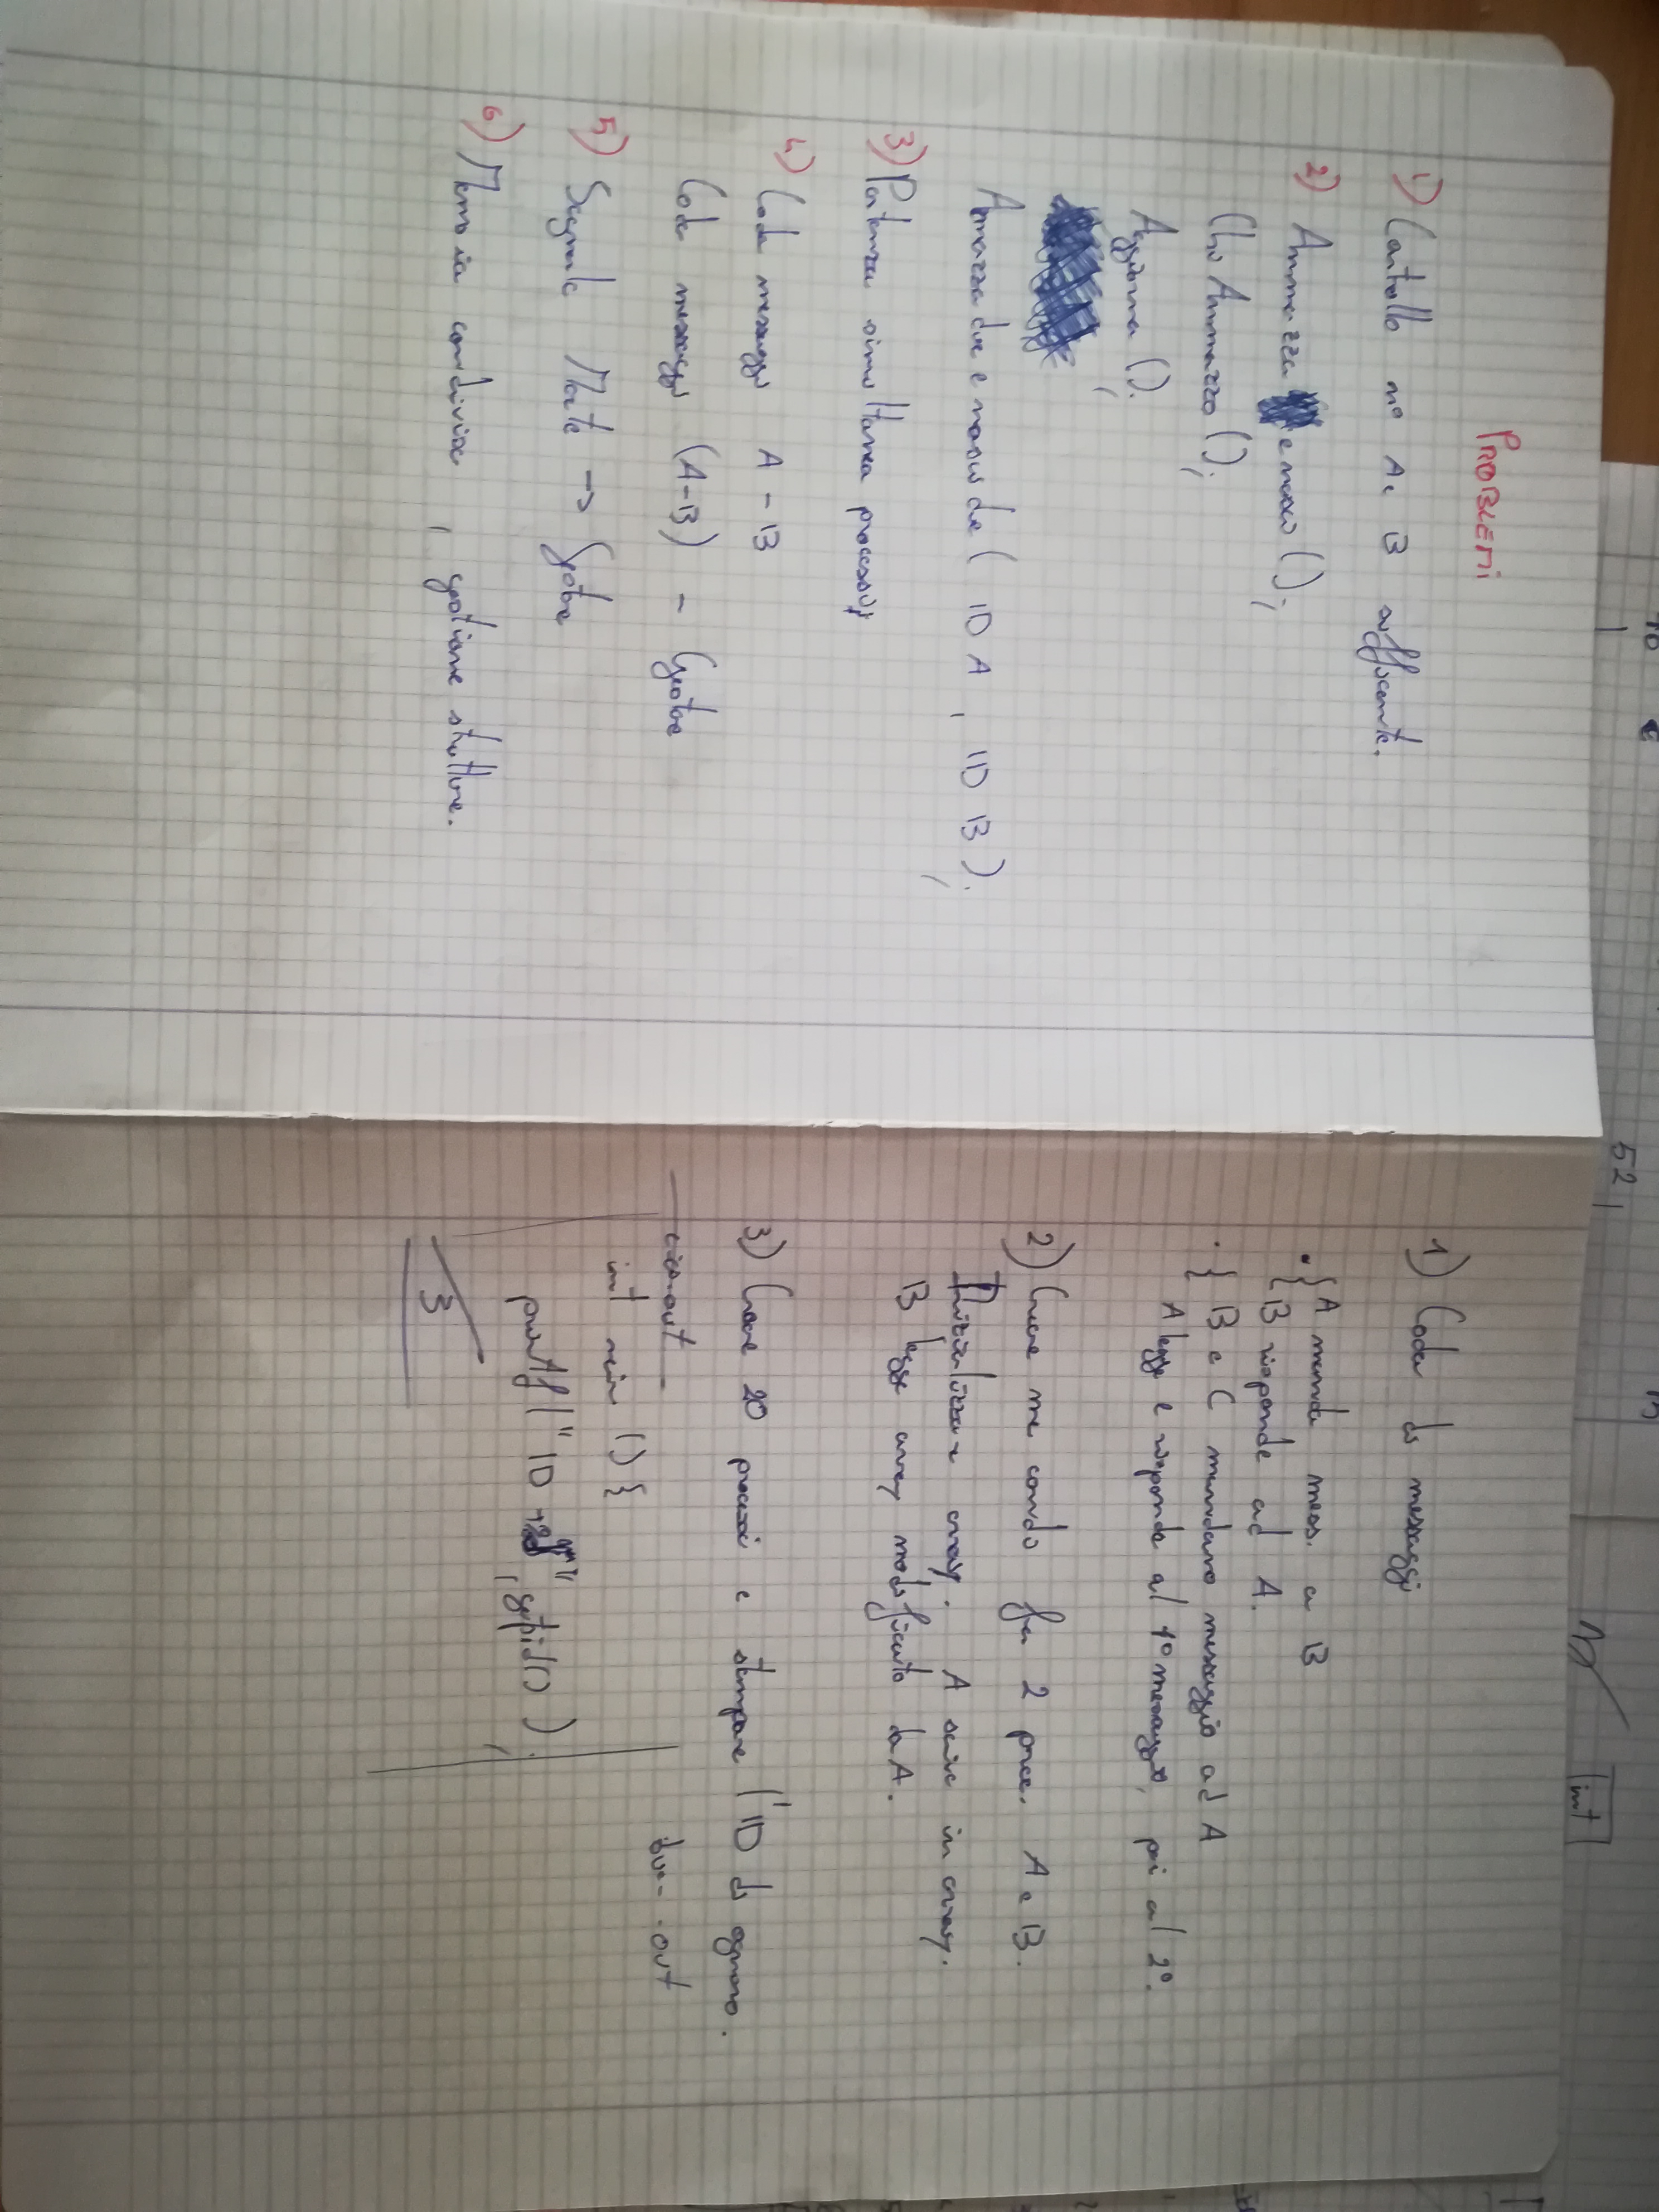 PROBLEMI
1) Controllo n° A, B sufficiente.
2) Ammazza e nasci ();
Chi Ammazzo ();
Aggiorna ();
Ammazza due e nasci due ( ID A , ID B );
3) Partenza simultanea processi
4) Coda messaggi A - B
Coda messaggi (A-B) - Gestore
5) Segnale Morte -> Gestore
6) Memoria condivisa , gestione strutture.
1) Coda di messaggi
• { A manda mess. a B
{ B risponde ad A.
• { B e C mandano messaggio ad A
A legge e risponde al 1° messaggio, poi al 2°.
2) Creare mem condo fra 2 proc. A e B.
Inizializzare array. A scrive in array.
B legge array modificato da A.
3) Creare 20 processi e stampare l'ID di ognuno.
ciao.out
int main () {
bua-.out
printf ("ID , getpid() );
3
52
int